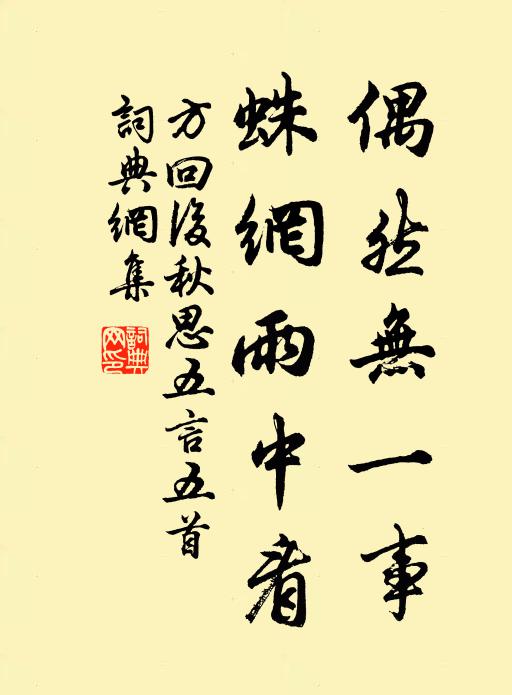 偶然無一事
蛛網雨中看
方回後秋思五言五首
詞典網集
詞典
网印